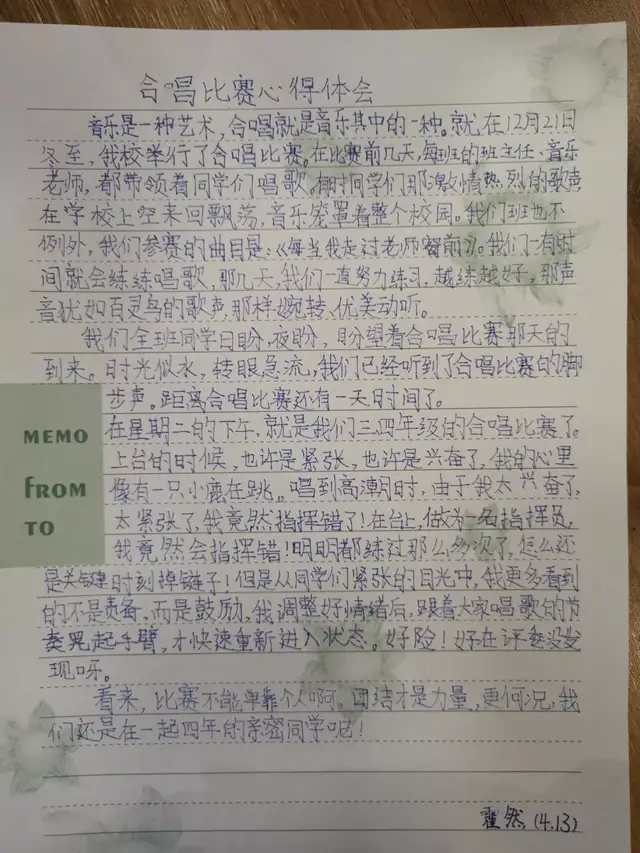 合唱比赛心得体会
音乐是一种艺术，合唱就是音乐其中的一种。就在12月21日
冬至，我校举行了合唱比赛。在比赛前几天，每班的班主任、音乐
老师，都带领着同学们唱歌，同学们那激情热烈的歌声
在学校上空来回飘荡，音乐笼罩着整个校园。我们班也不
例外，我们参赛的曲目是：《每当我走过老师窗前》。我们一有时
间就会练练唱歌，那几天，我们一直努力练习，越练越好，那声
音犹如百灵鸟的歌声，那样婉转、优美动听。
我们全班同学日盼，夜盼，盼望着合唱比赛那天的
到来。时光似水，转眼急流，我们已经听到了合唱比赛的脚
步声。距离合唱比赛还有一天时间了。
MEMO
FROM
TO
在星期二的下午，就是我们三四年级的合唱比赛了。
上台的时候，也许是紧张，也许是兴奋了，我的心里
像有一只小鹿在跳。唱到高潮时，由于我太兴奋了，
太紧张了，我竟然指挥错了！在台上，做为一名指挥员，
我竟然会指挥错！明明都练过那么多次了，怎么还
是关键时刻掉链子！但是从同学们紧张的目光中，我更多看到
的不是责备，而是鼓励，我调整好情绪后，跟着大家唱歌的节
奏晃起手臂，才快速重新进入状态。好险！好在评委没发
现呀。
看来，比赛不能单靠个人啊，团结才是力量，更何况，我
们还是在一起四年的亲密同学呢！
霍然 (4.13)